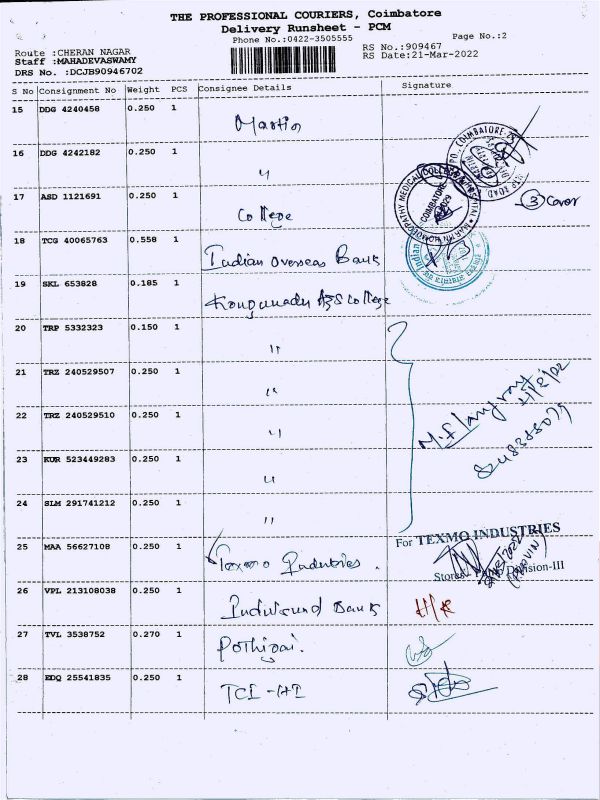 THE PROFESSIONAL COURIERS, Coimbatore
Delivery Runsheet - PCM
Phone No.:0422-3505555
Page No.:2
Route :CHERAN NAGAR
RS No.:909467
Staff :MAHADEVASWAMY
RS Date:21-Mar-2022
DRS No. :DCJB90946702
S No Consignment No Weight PCS Consignee Details Signature
15 DDG 4240458 0.250 1
Martin
16 DDG 4242182 0.250 1
"
17 ASD 1121691 0.250 1
College
③ Cover
18 TCG 40065763 0.558 1
Indian Overseas Bank
19 SKL 653828 0.185 1
Kongunadu A&S College
20 TRP 5332323 0.150 1
"
21 TRZ 240529507 0.250 1
"
22 TRZ 240529510 0.250 1
"
23 KUR 523449283 0.250 1
"
24 SLM 291741212 0.250 1
"
For TEXMO INDUSTRIES
25 MAA 56627108 0.250 1
Texmo Industries.
Division-III
26 VPL 213108038 0.250 1
Indusund Bank
27 TVL 3538752 0.270 1
Pothigai.
28 EDQ 25541835 0.250 1
TCI - HI